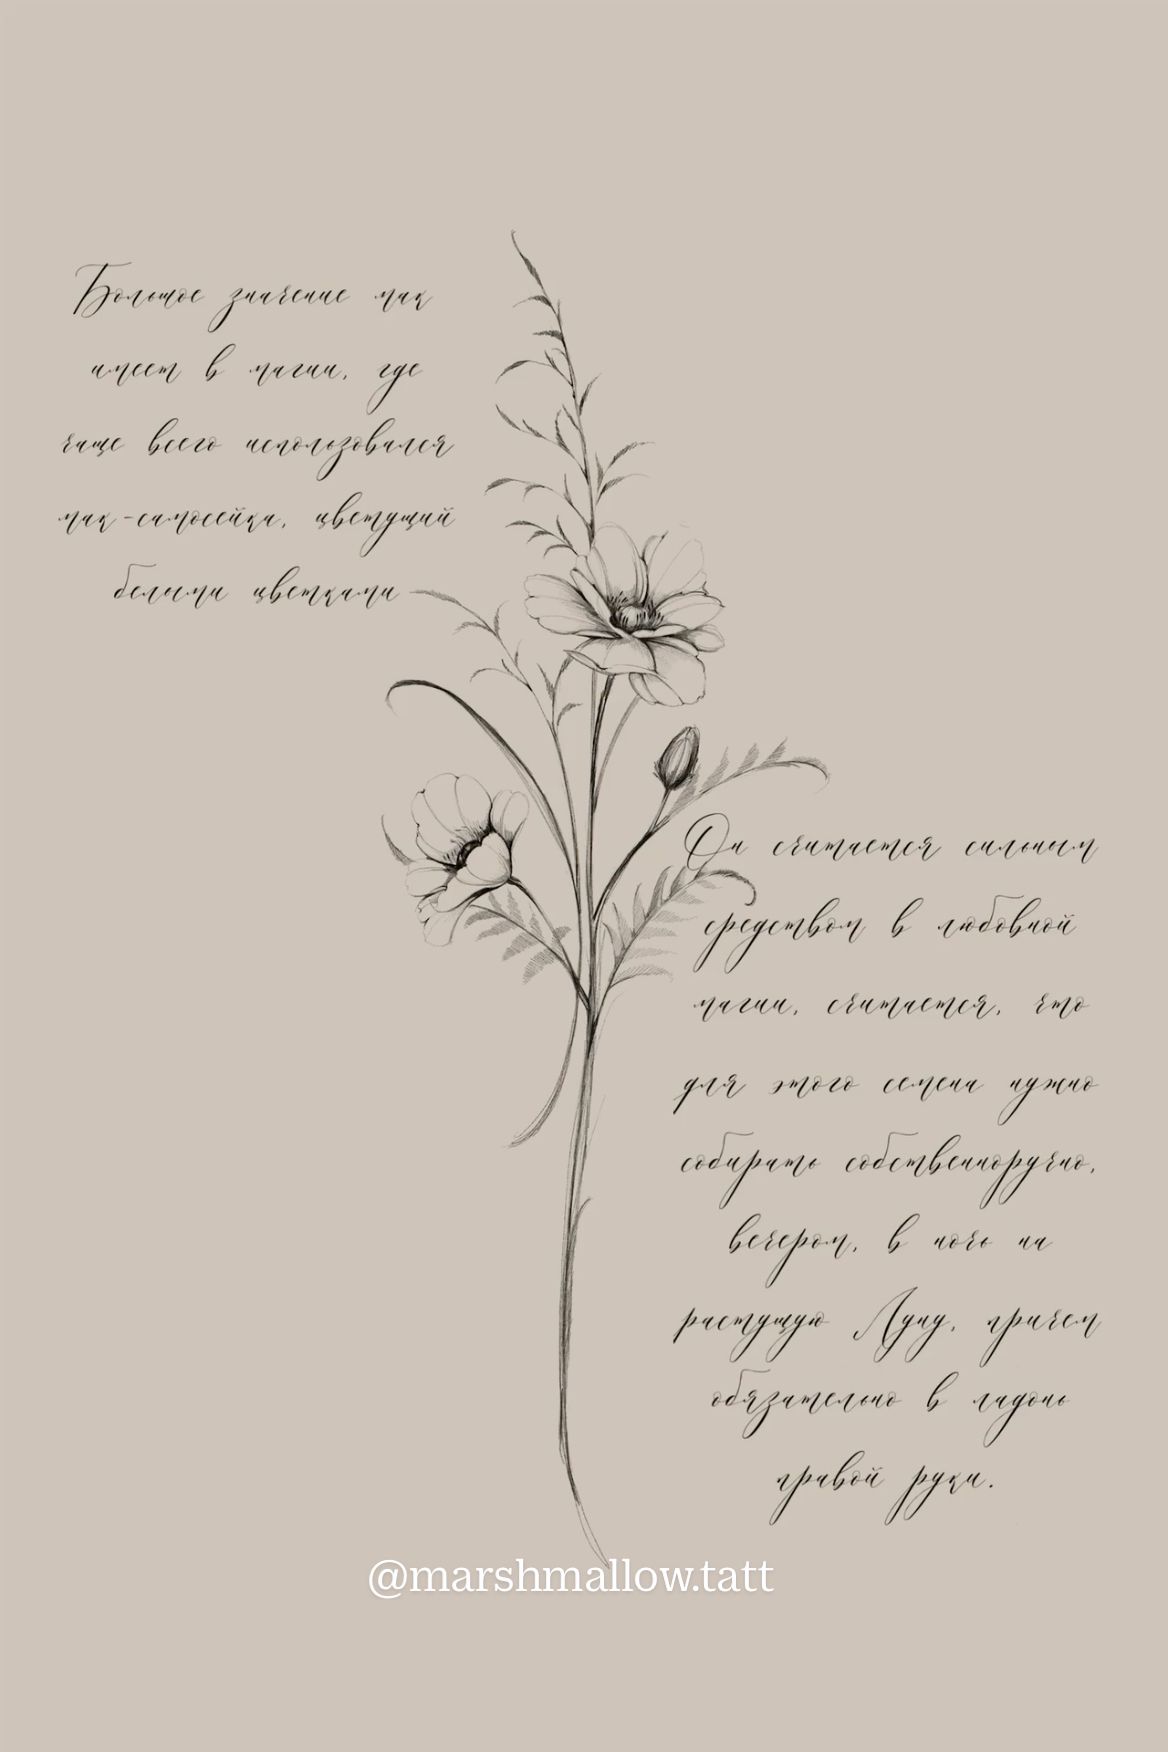 Большое значение мак
имеет в магии, где
чаще всего использовался
мак-самосейка, цветущий
белыми цветками
Он считается сильным
средством в любовной
магии, считается, что
для этого семена нужно
собирать собственноручно,
вечером, в ночь на
растущую Луну, причем
обязательно в ладонь
правой руки.
@marshmallow.tatt